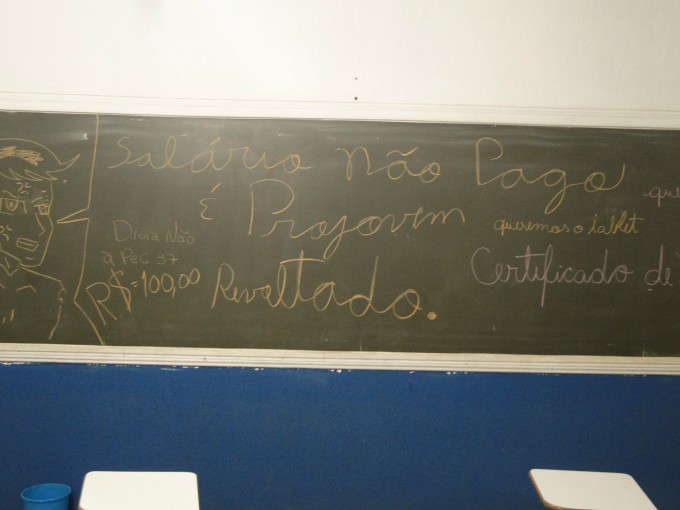 Salário Não Pago
é Projovem
Revoltado.
Diga Não
a Pec 37
R$=100,00
que
queremos o tablet
Certificado de